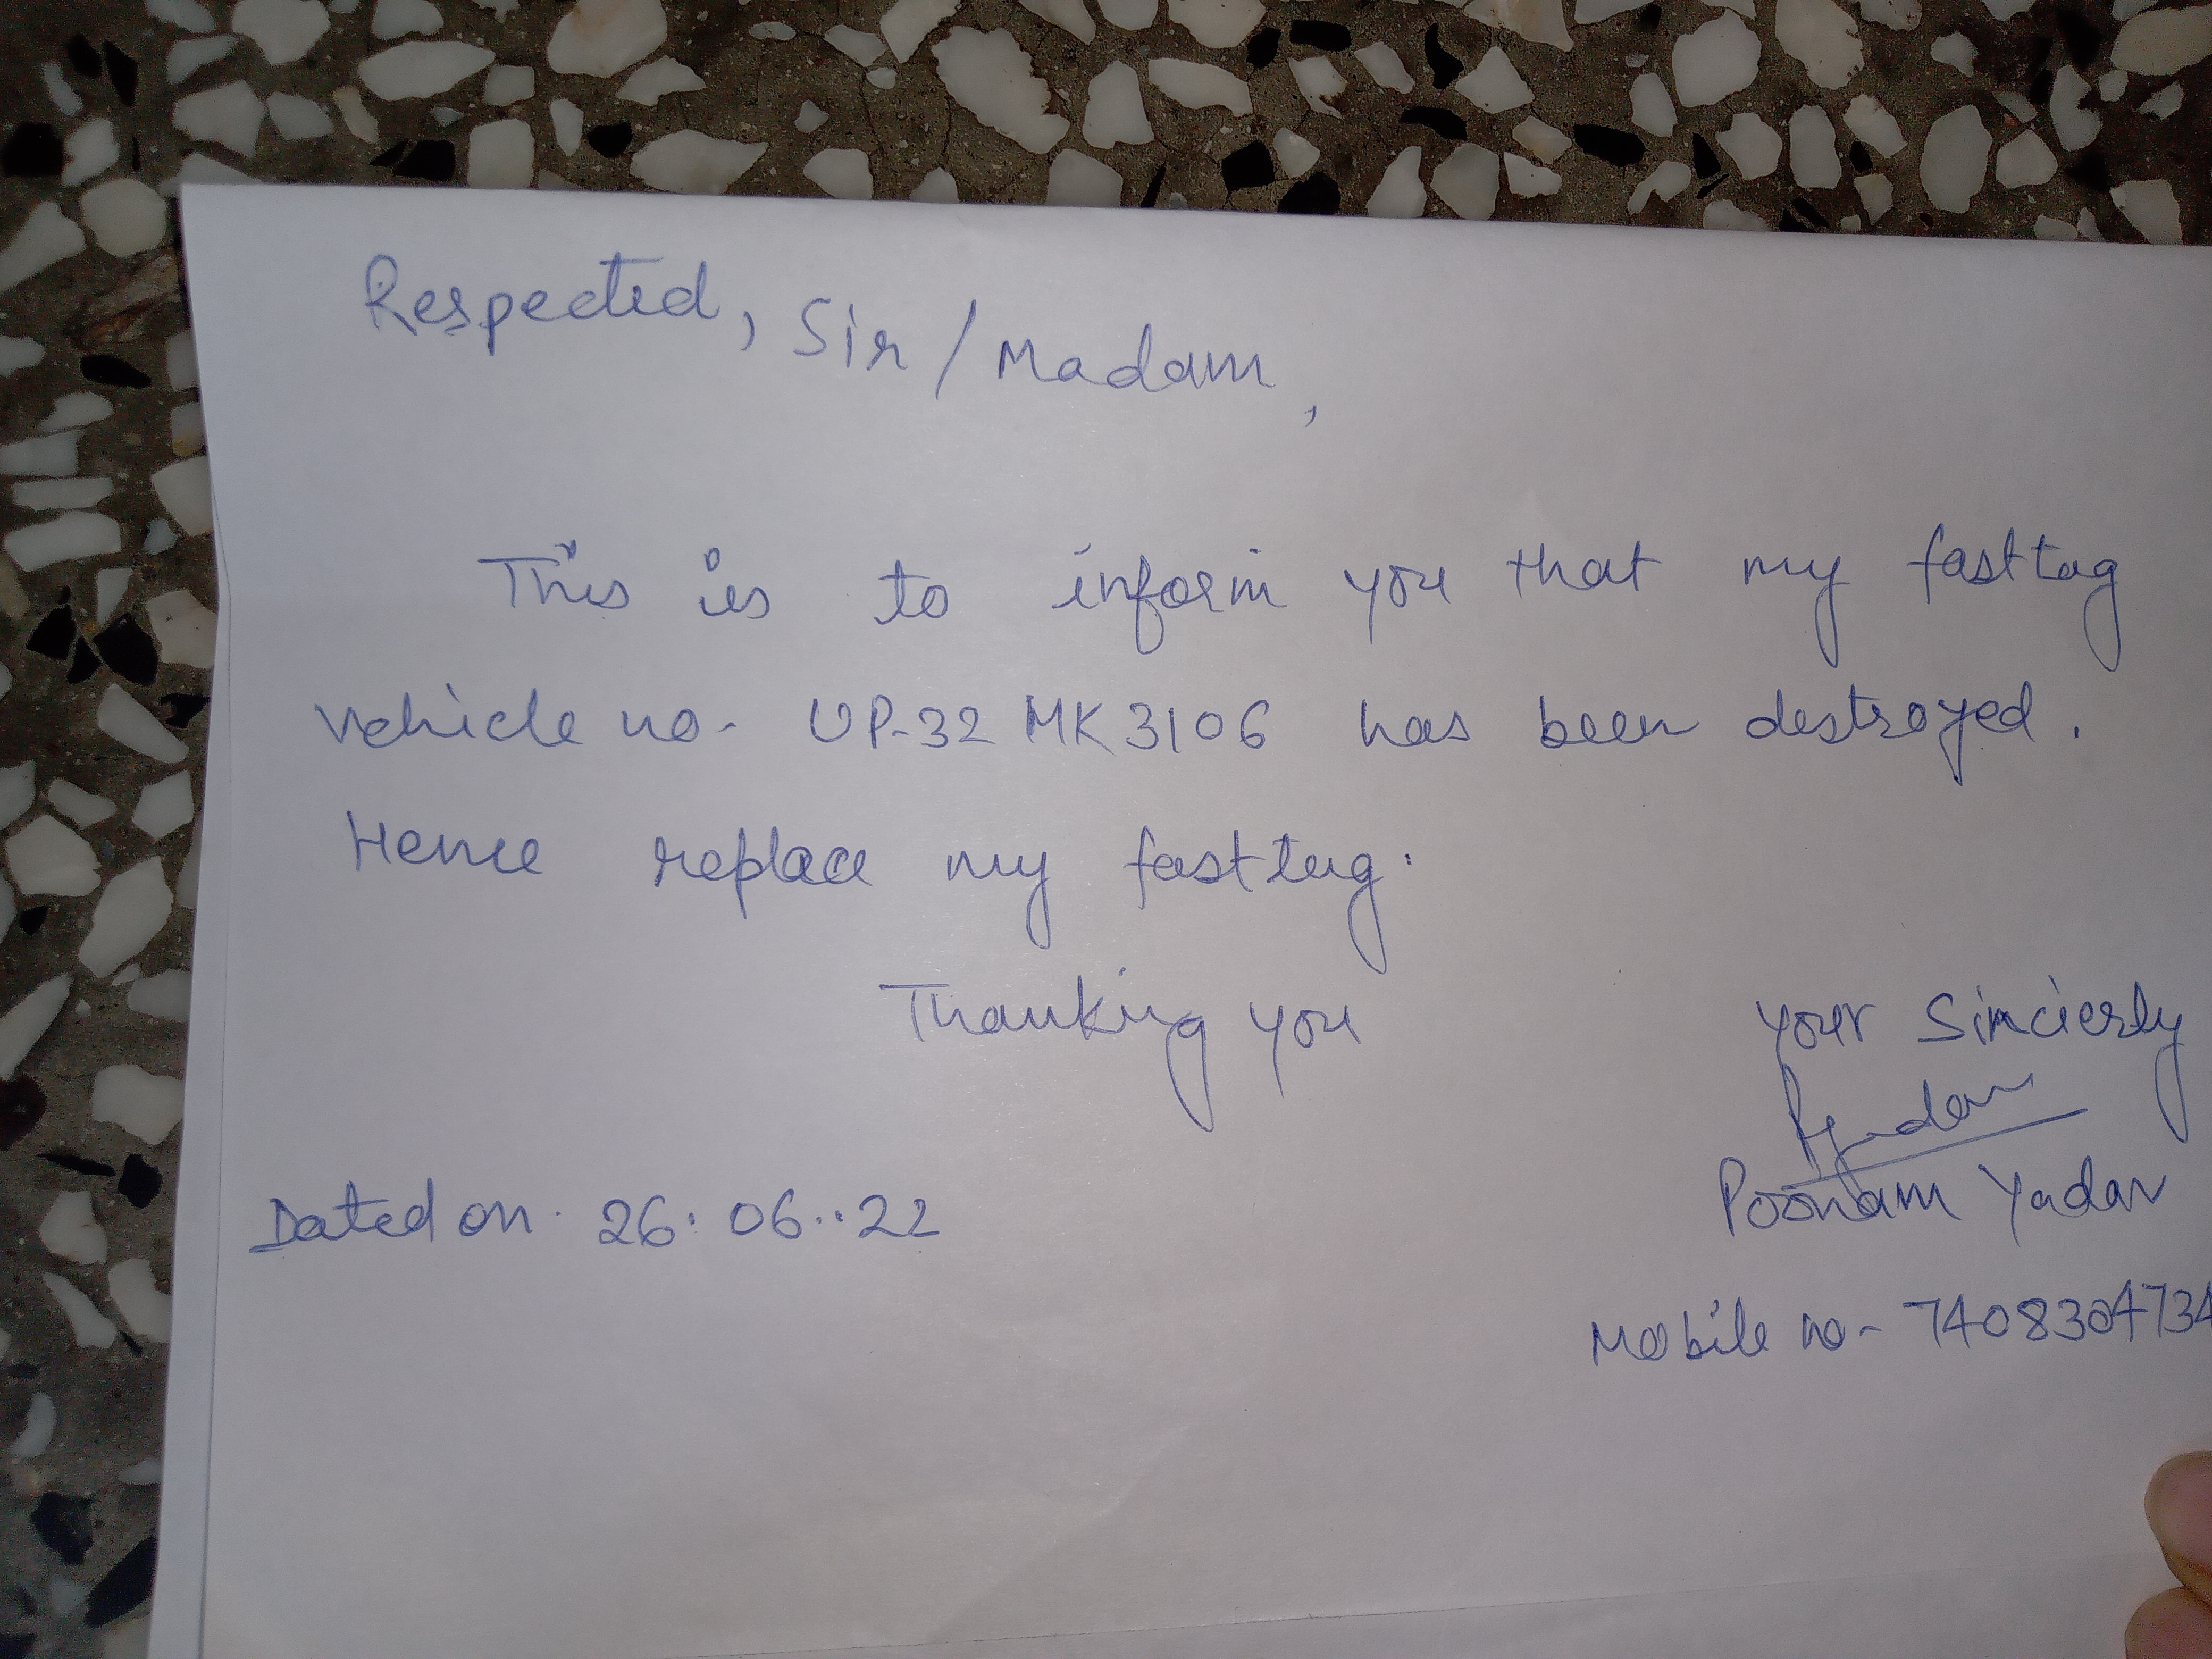 Respected, Sir / Madam,
This is to inform you that my fasttag
vehicle no- UP-32 MK 3106 has been destroyed.
Hence replace my fasttag.
Thanking you
your Sincierly
Poonam Yadav
Dated on. 26. 06..22
Mobile no- 7408304734